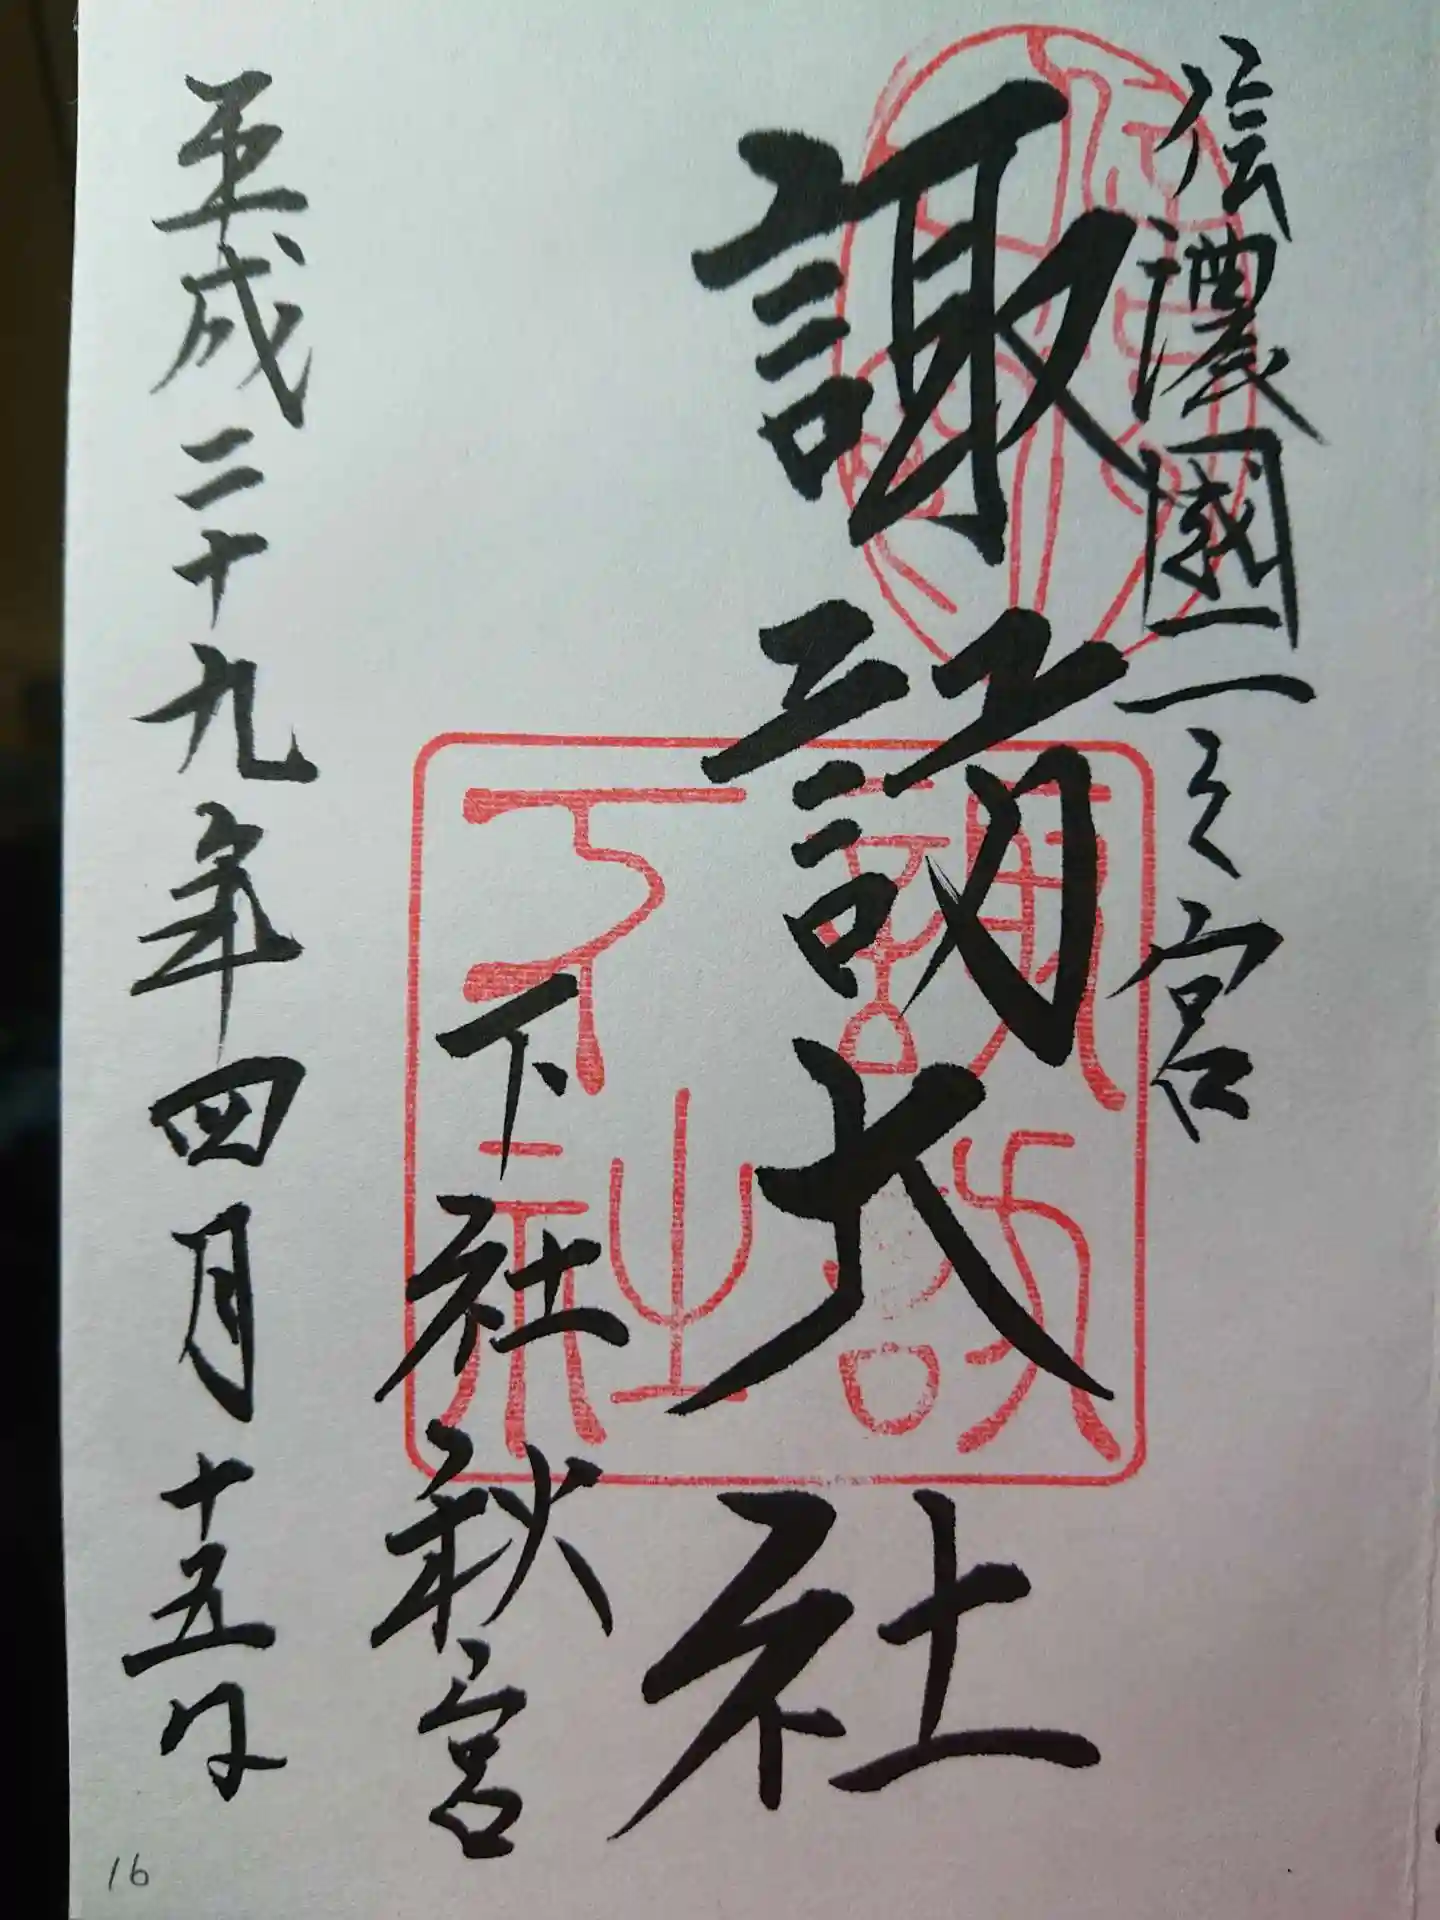 信濃國一之宮
諏訪大社
下社秋宮
平成二十九年四月十五日
諏訪
下社
16